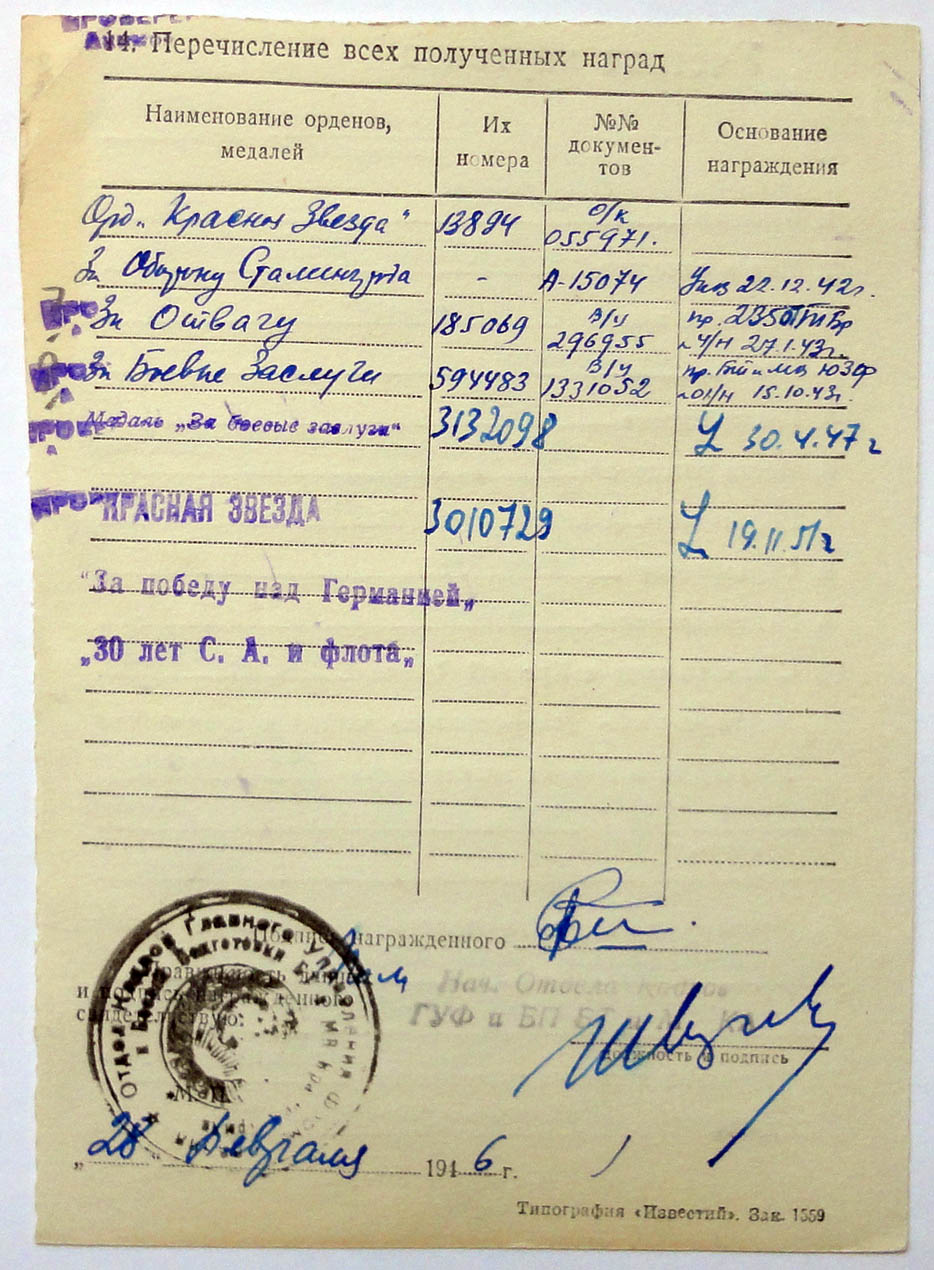 ПРОВЕРЕН
14. Перечисление всех полученных наград
Наименование орденов, медалей
Их номера
№№ документов
Основание награждения
Орд. „Красная Звезда" 13894 о/к 055971.
За Оборону Сталинграда - А-15074 Указ 22.12.42г.
За Отвагу 185069 в/у 296955 пр. 235 ч/н 27.1.43г.
За Боевые Заслуги 594483 в/у 1331052 пр. ЮЗФ 15.10.43г.
Медаль „За боевые заслуги" 3132098 30.4.47г
КРАСНАЯ ЗВЕЗДА 3010729 19.11.51г
"За победу над Германией„
„30 лет С. А. и флота„
Подпись награжденного
Правильность данных
и подпись награжденного
свидетельствую:
Нач. Отдела Кадров
ГУФ и БП БТ и МВ КА
должность и подпись
М. П.
„28" Февраля 1946 г.
Типография «Известий». Зак. 1559